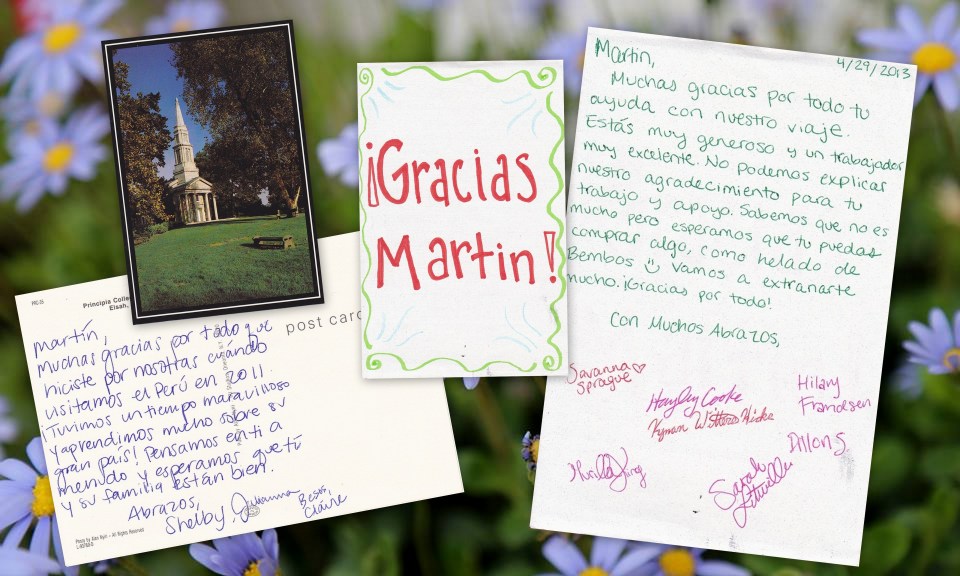 PRE-25
Principia Colle
Elsah,
post card
martín,
muchas gracias por todo que
hiciste por nosotras cuándo
visitamos el Perú en 2011.
¡Tuvimos un tiempo maravilloso
y aprendimos mucho sobre su
gran país! Pensamos en ti a
menudo y esperamos que tú
y su familia están bien.
Abrazos,
Shelby, Julianna
Besos,
Claire
¡Gracias
Martin!
4/29/2013
Martin,
Muchas gracias por todo tu
ayuda con nuestro viaje.
Estás muy generoso y un trabajador
muy excelente. No podemos explicar
nuestro agradecimiento para tu
trabajo y apoyo. Sabemos que no es
mucho pero esperamos que tu puedas
comprar algo, como helado de
Bembos Vamos a extranarte
mucho. ¡Gracias por todo!
Con Muchos Abrazos,
Savanna
Sprague
Hayley Cooke
Hilary
Dillon S
Sarah